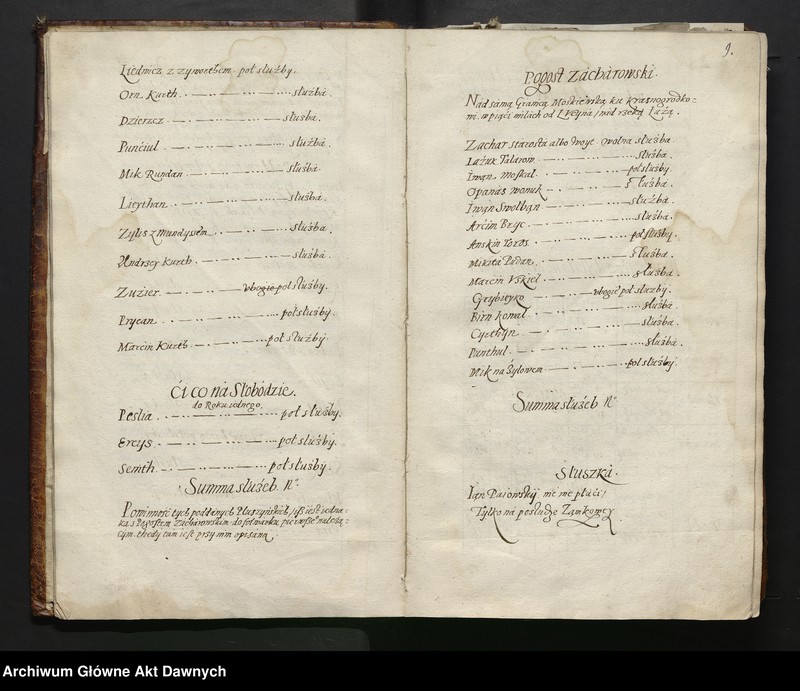 Liednicz z zywotthem pol służby.
Orn Kurth służba
Dzierzcz służba.
Punciul służba.
Mik Rundan służba
Licythan służba.
Zylis z Mundyssem służba.
Andrzey Kurth służba.
Zuzier vbogie pol służby.
Prycan pol służby.
Marcin Kurth pol służby
Ci co na Słobodzie.
do Roku iednego.
Peslia pol służby.
Ereys pol służby.
Semth pol służby.
Summa służeb N°.
Powinność tych poddanych iż iest iedna-
ka z Pogostem Zacharowskim do folwarku należą-
cym. thedy tam iest przy nim opisana.
9.
Pogost Zacharowski.
Nad samą Granicą Moskiewską ku Krasnogrodko-
wi. w piąci milach od Luzyna / nad rzeką Łażą.
Zachar starosta albo woyt wolna służba
Lazux Talarow służba.
Iwan Moskal pol służby
Opanas wonuk służba.
Iwan Swolban służba
Arcim Bryc służba.
Anskin Toros pol służby.
Mikita Padan służba.
Marcin Vskiel służba.
Grzybiszko vbogie pol służby.
Birn Kowal służba.
Cyrthyn służba.
Punthul służba.
Mik na Syłowem pol służby.
Summa służeb N°
Słuszka.
Ian nic nie płaci /
Tylko na posłudze Zamkowey
Archiwum Główne Akt Dawnych